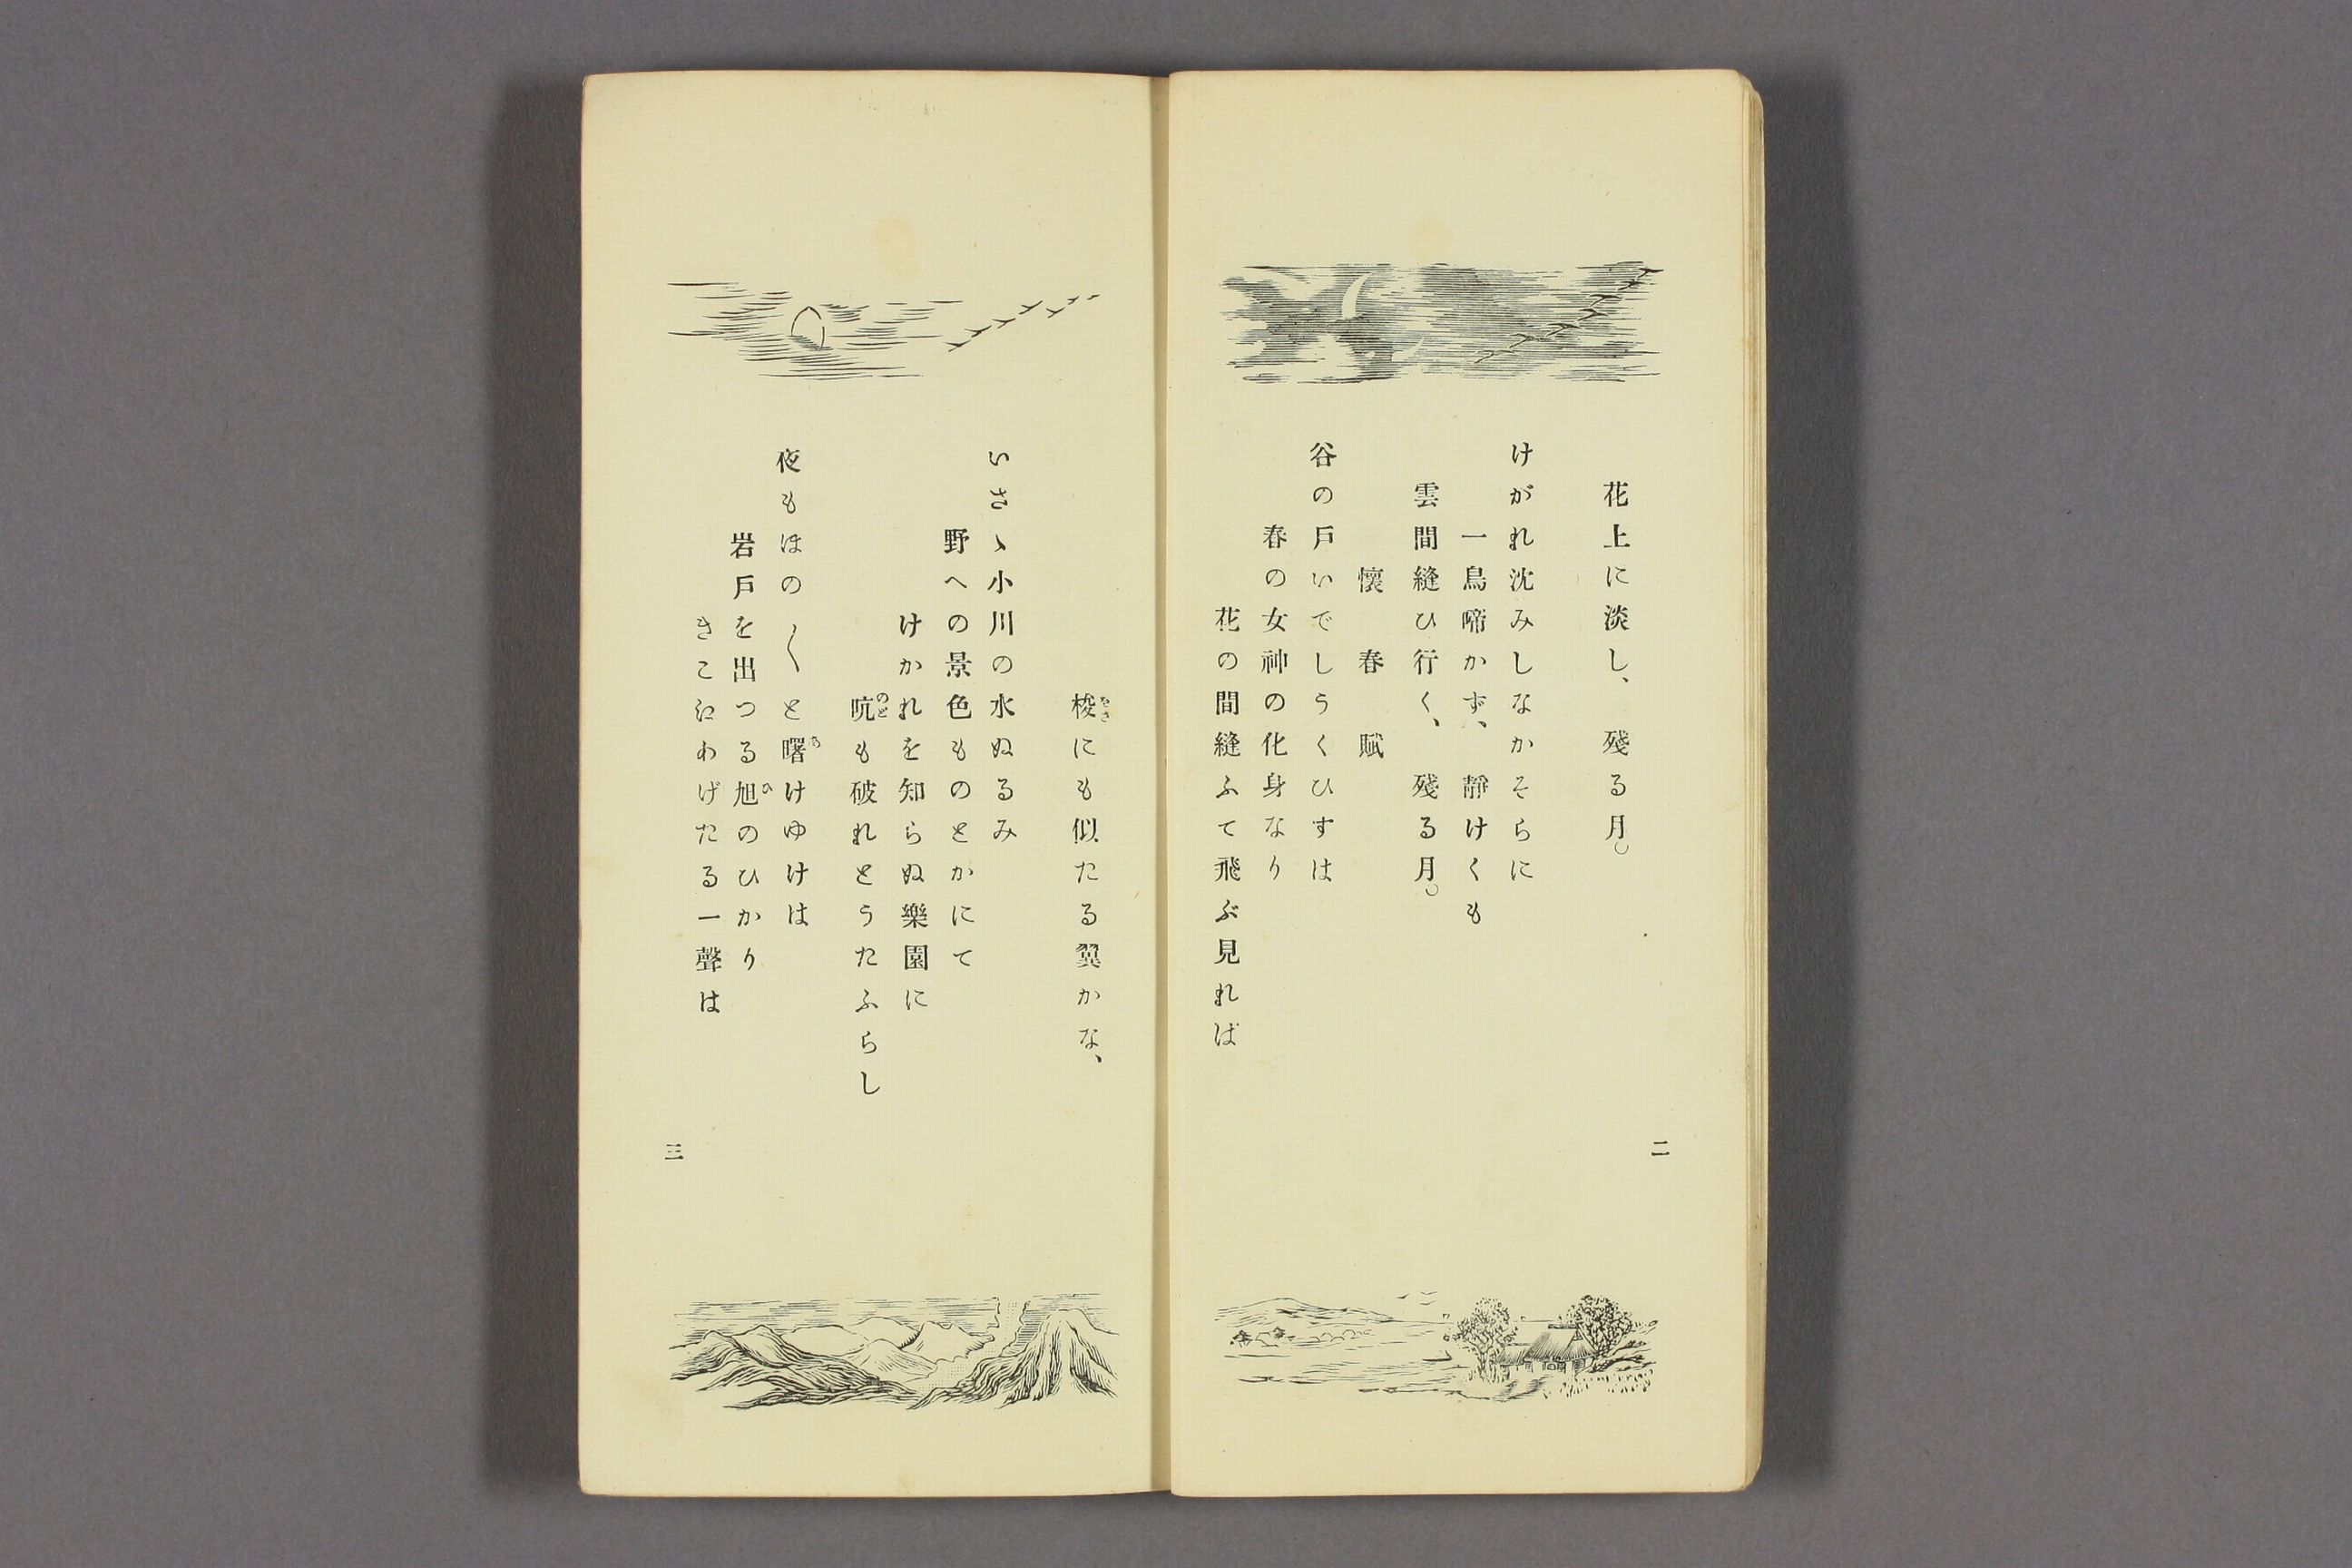 二
花上に淡し、殘る月。
けがれ沈みしなかそらに
一鳥啼かず、靜けくも
雲間縫ひ行く、殘る月。
懷春賦
谷の戸いでしうくひすは
春の女神の化身なり
花の間縫ふて飛ぶ見れば
梭にも似たる翼かな、
いさゝ小川の水ぬるみ
野への景色ものとかにて
けかれを知らぬ樂園に
吭も破れとうたふらし
夜もほの〱と曙けゆけは
岩戸を出つる旭のひかり
きこえわげたる一聲は
三